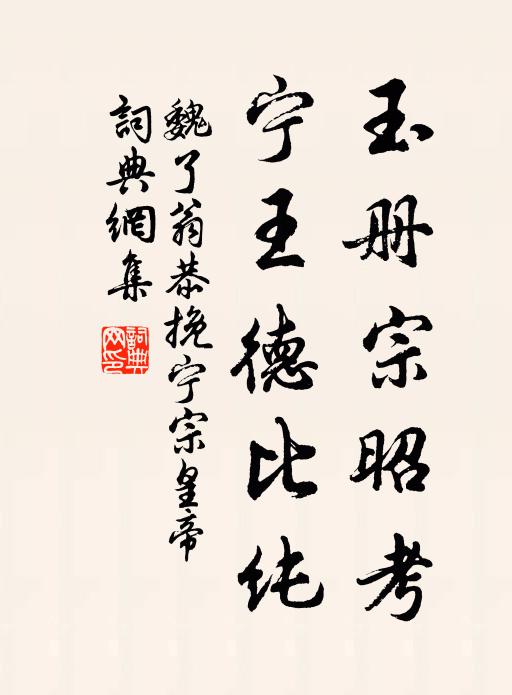 玉册宗昭考
宁王德比纯
魏了翁恭挽宁宗皇帝
詞典網集
詞典网印